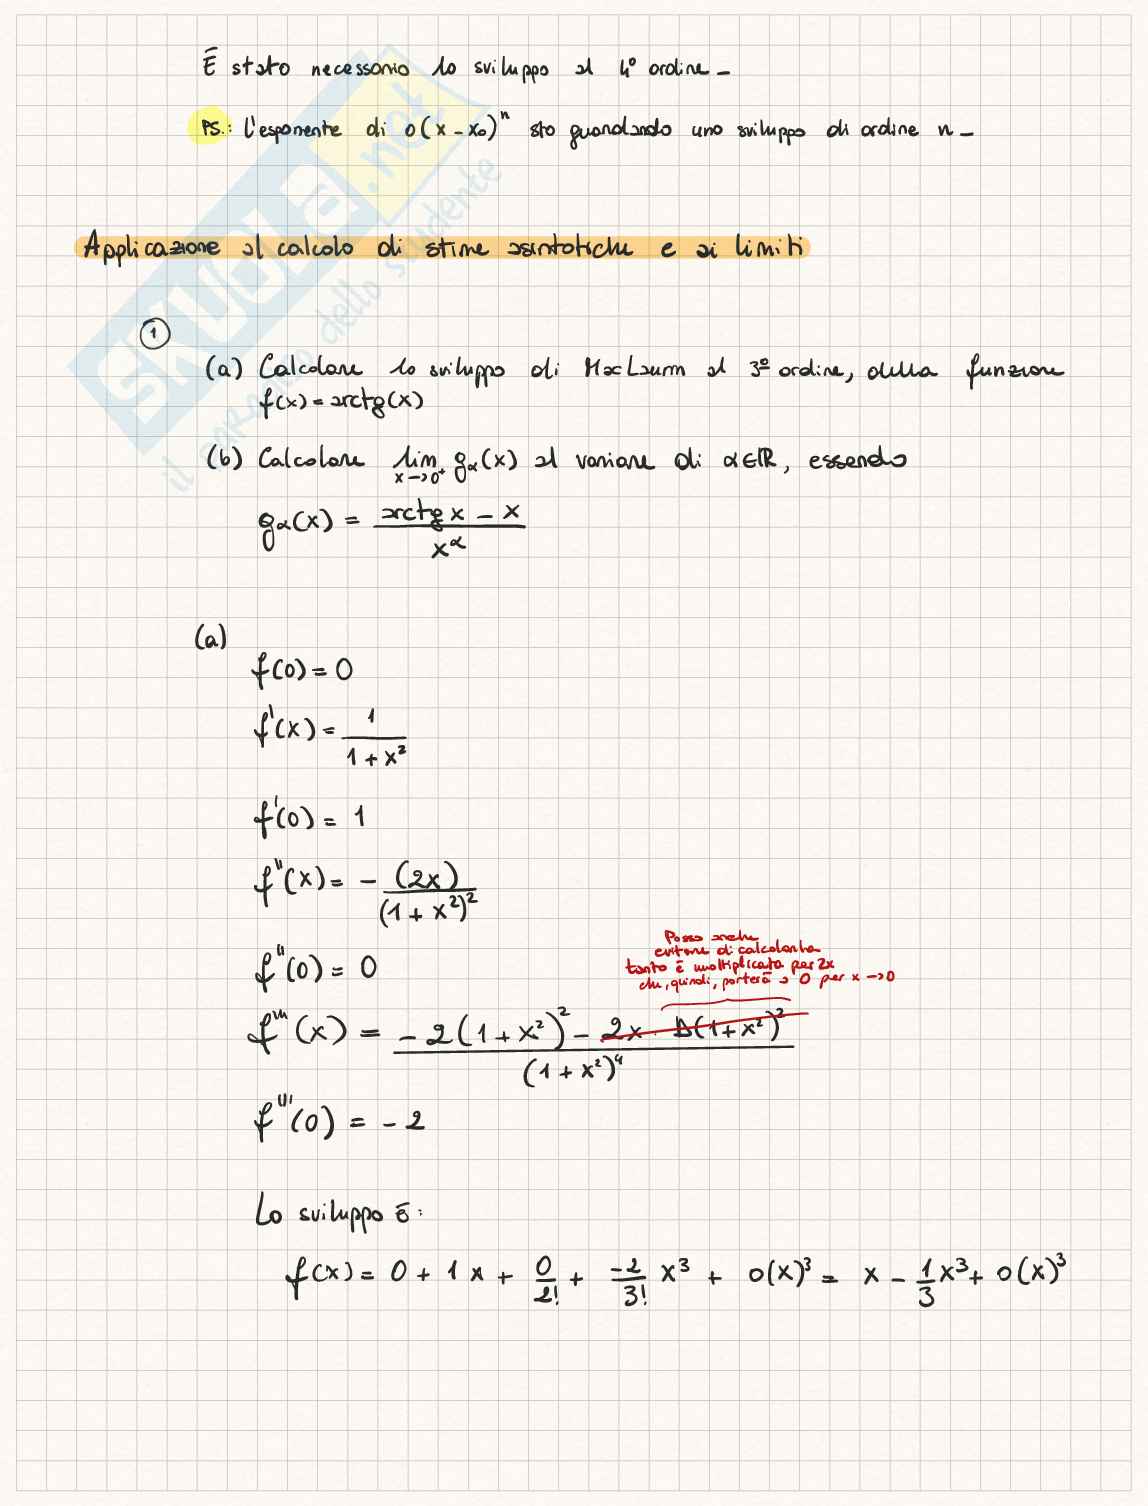 È stato necessario lo sviluppo al 4° ordine_
PS.: l'esponente di o(x-x₀)ⁿ sto guardando uno sviluppo di ordine n_
Applicazione al calcolo di stime asintotiche e ai limiti
1
(a) Calcolare lo sviluppo di MacLaurin al 3º ordine, della funzione
f(x) = arctg(x)
(b) Calcolare lim x→0⁺ gα(x) al variare di α∈ℝ, essendo
gα(x) = (arctg x - x) / x^α
(a)
f(0) = 0
f'(x) = 1 / (1+x²)
f'(0) = 1
f''(x) = - (2x) / (1+x²)²
f''(0) = 0
Posso anche
evitare di calcolarla
tanto è moltiplicata per 2x
che, quindi, porterà a 0 per x→0
f'''(x) = (-2(1+x²)² - 2x · D(1+x²)²) / (1+x²)⁴
f'''(0) = -2
Lo sviluppo è:
f(x) = 0 + 1x + 0/2! + -2/3! x³ + o(x)³ = x - 1/3 x³ + o(x)³
SKUOLA.net
il paradiso dello studente